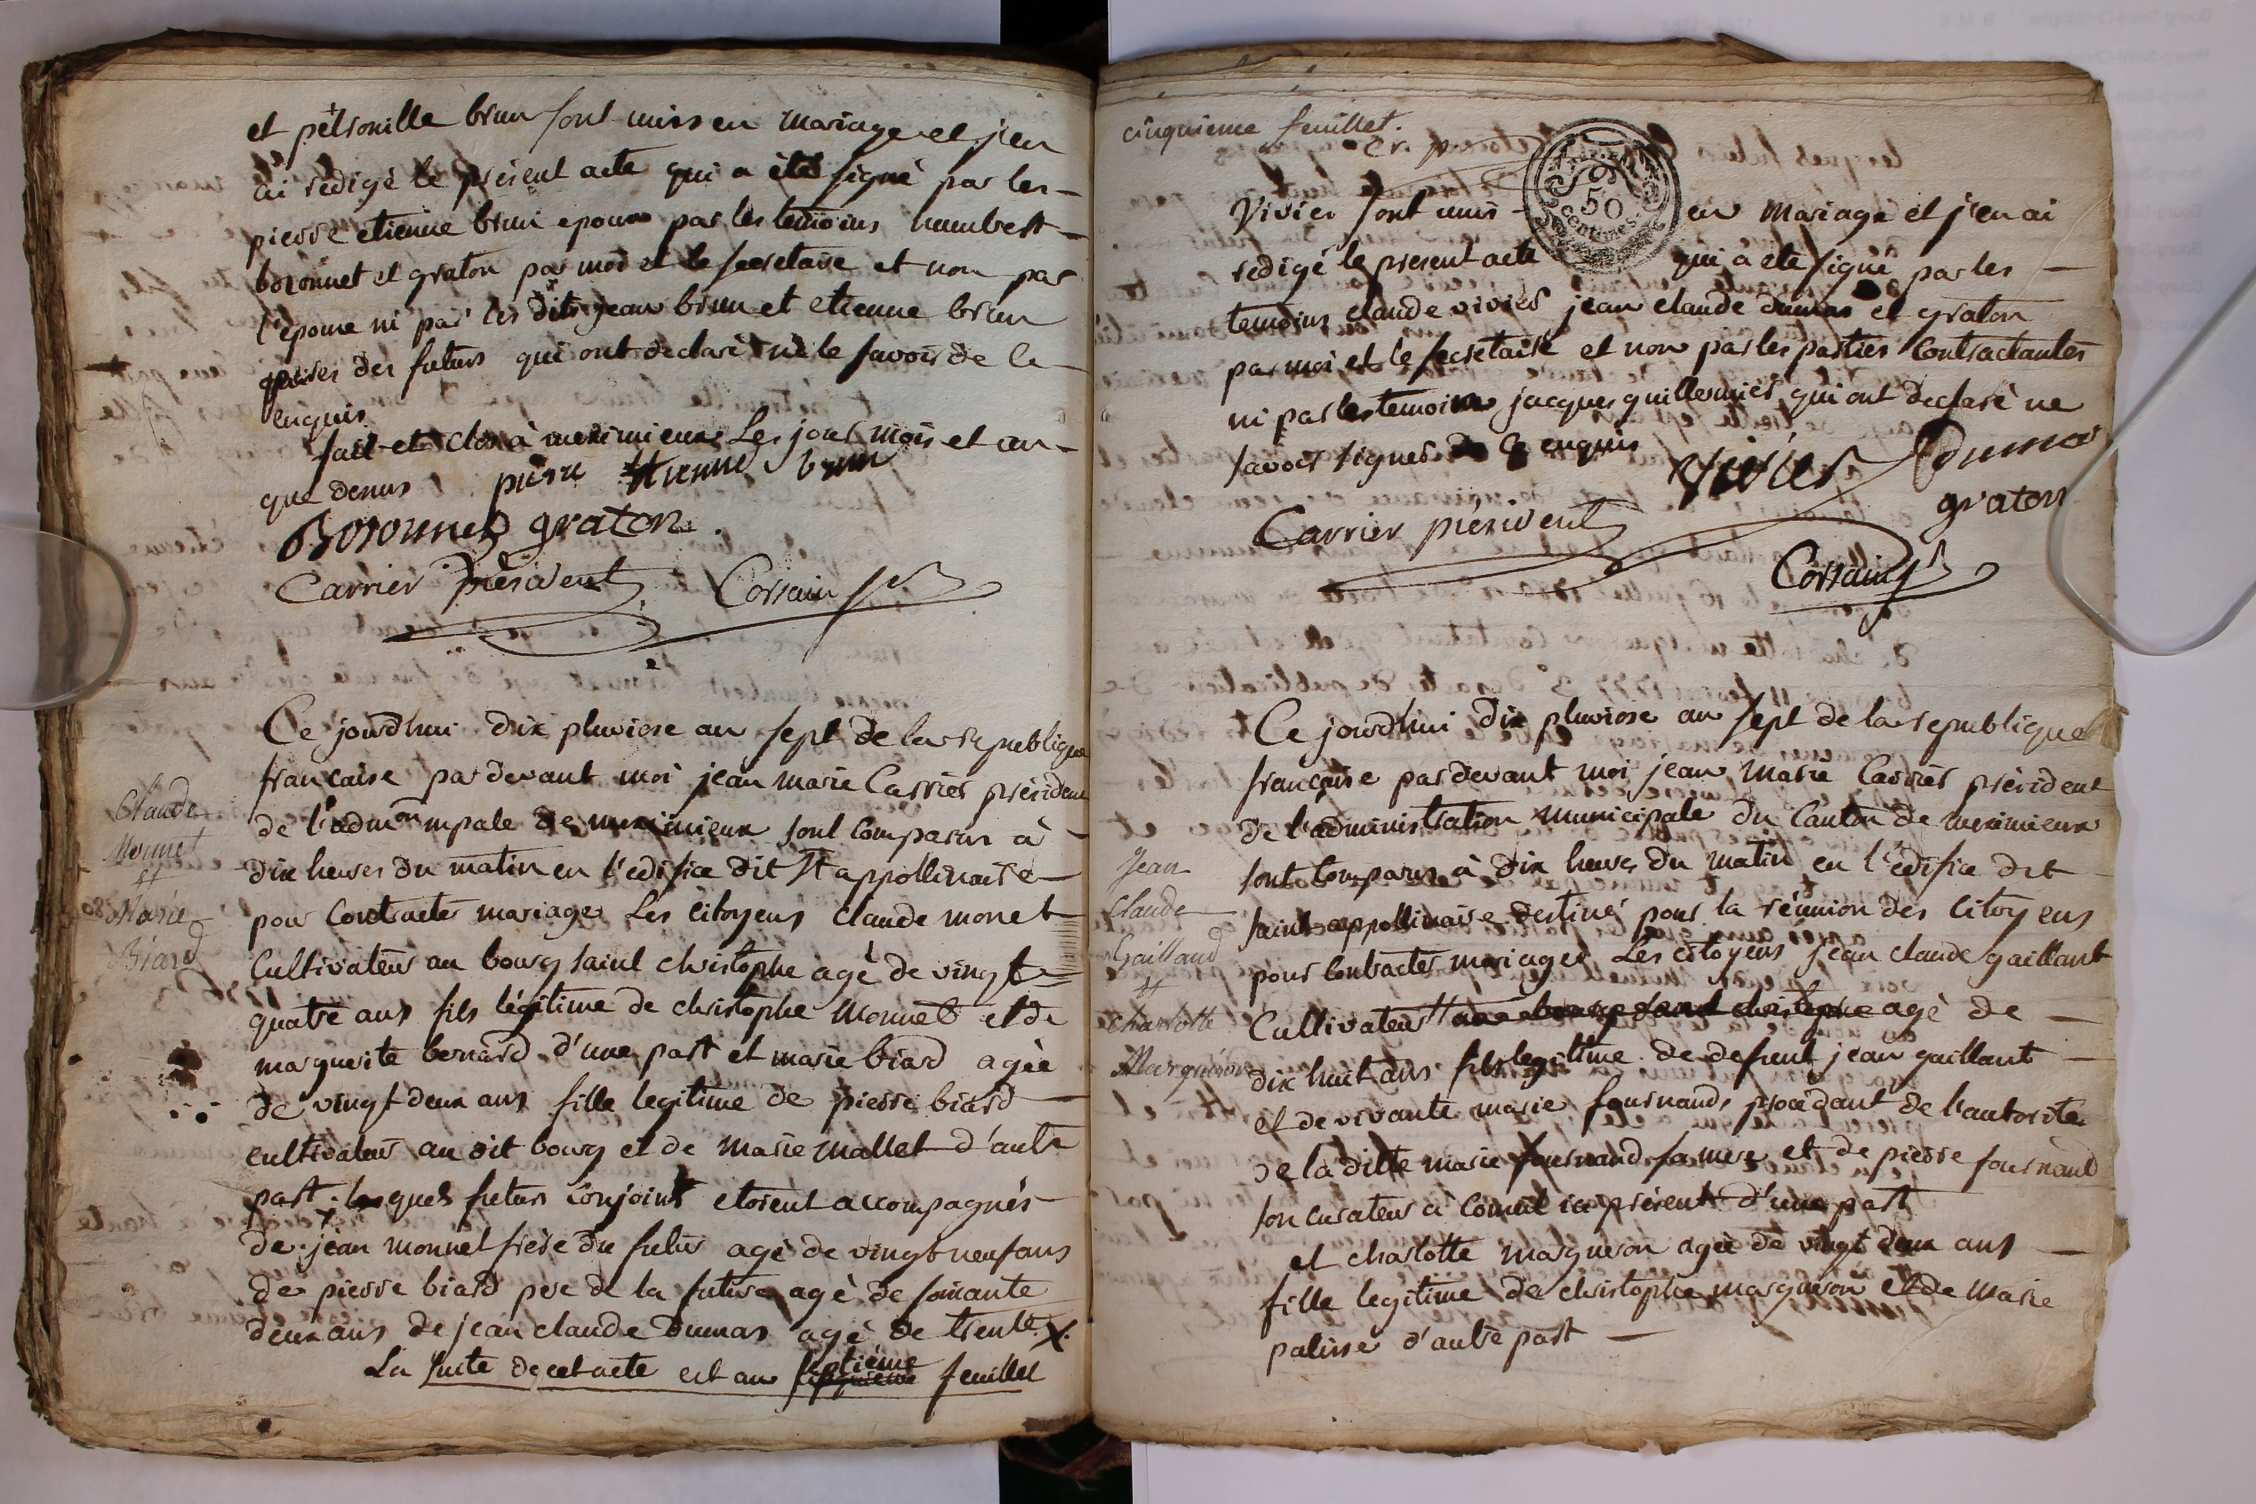 et pétronille brun sont unis en mariage et j'en
ai rédigé le présent acte qui a été signé par les
pierre etienne brun epoux par les temoins humbert
bozonnet et graton par moi et le secretaire et non par
l'epouse ni par les dits jean brun et etienne brun
peres des futurs qui ont declaré ne le savoir de ce
enquis
fait et clos à meximieux les jour mois et an
que dessus pierre etienne brun
Bozonnet graton
Carrier président Corsain sre
Ce jourdhui dix pluviose an sept de la republique
française pardevant moi jean marie Carrier président
de l'admon mpale de meximieux sont comparus à
dix heures du matin en l'édifice dit St appollinaire
pour contracter mariage Les citoyens Claude monet
Cultivateur au bourg saint christophe agé de vingt
quatre ans fils légitime de christophe Monnet et de
marguerite bernard d'une part et marie biard agée
de vingt deux ans fille legitime de pierre biard
cultivateur au dit bourg et de marie mallet d'autre
part. lesquels futurs conjoints etoient accompagnés
de jean monnet frere du futur agé de vingt neuf ans
de pierre biard pere de la future agé de soixante
deux ans de jean claude Dumas agé de trente X.
La suite de cet acte est au septième feuillet
Claude
Monnet
et
Marie
Biard
cinquieme feuillet.
50
centimes
Vivier sont unis en mariage et j'en ai
redigé le present acte qui a été signé par les
temoins claude vivier jean claude dumas et graton
par moi et le secretaire et non par les parties Contractantes
ni par les temoin jacques guillermier qui ont declaré ne
savoir signer de ce enquis
vivier Dumas
Carrier président graton
Corsain sr
Ce jourdhui dix pluviose an sept de la republique
française pardevant moi jean Marie Carrier président
de l'administration municipale du Canton de meximieux
sont Comparus à dix heures du matin en l'édifice dit
saint appollinaire destiné pour la réunion des citoyens
pour contracter mariage Les citoyens jean claude gaillant
Cultivateur au bourg saint christophe agé de
dix huit ans fils legitime de defunt jean gaillant
et de vivante marie fournand, procedant de l'autorité
de la ditte marie fournand sa mere et de pierre fournand
son curateur à Conseil ici présent d'une part
et charlotte marguson agée de vingt deux ans
fille legitime de christophe marguson et de Marie
palisse d'autre part
Jean
Claude
Gailland
et
Charlotte